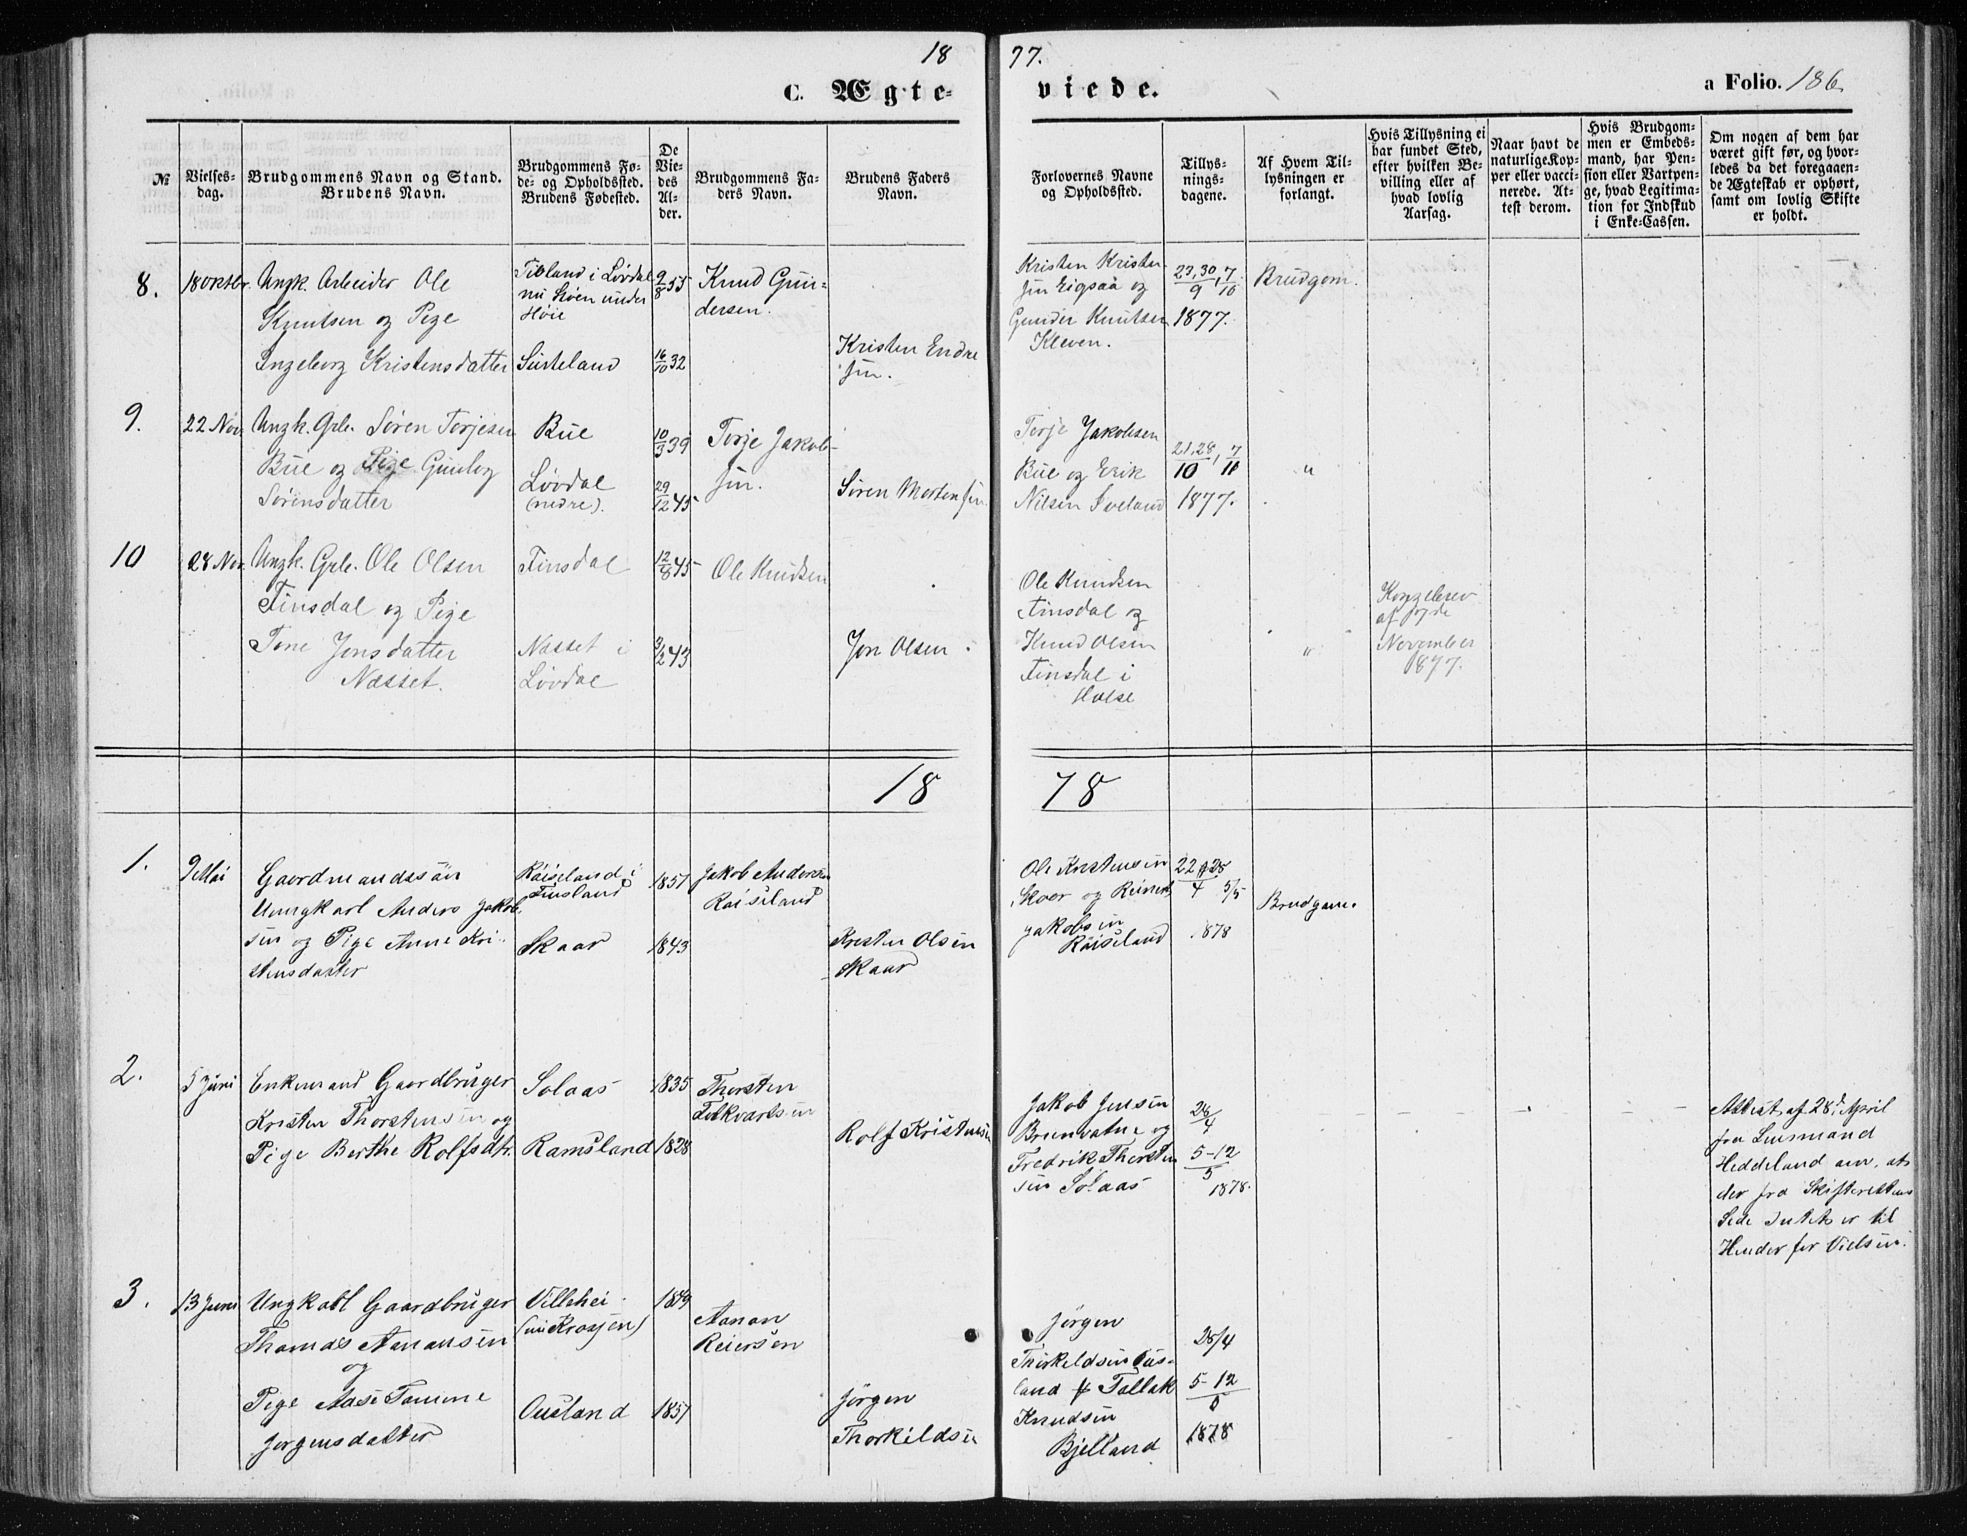 18 77.
C. Ægte-viede.
a Folio. 186
№
Vielses-dag.
Brudgommens Navn og Stand.
Brudens Navn.
Brudgommens Fø-
de- og Opholdssted.
Brudens Fødested.
De
Vie-
des
Al-
der.
Brudgommens Fa-
ders Navn.
Brudens Faders
Navn.
Forlovernes Navne
og Opholdssted.
Tillys-
nings-
dagene.
Af Hvem Til-
lysningen er
forlangt.
Hvis Tillysning ei
har fundet Sted,
efter hvilken Be-
villing eller af
hvad lovlig
Aarsag.
Naar havt de
naturlige Kop-
per eller vacci-
nerede. At-
test derom.
Hvis Brudgom-
men er Embeds-
mand, har Pen-
sion eller Vartpen-
ge, hvad Legitima-
tion for Indskud
i Enke-Cassen.
Om nogen af dem har
været gift før, og hvor-
ledes da det foregaaen-
de Ægteskab er ophørt,
samt om lovlig Skifte
er holdt.
8.
18 Oktbr.
Ungk. Arbeider Ole
Knutsen og Pige
Ingeborg Kristensdatter
i Løvdal
nu Moen under
Høie
Surteland
9/8 55
16/10 32
Knud Gun-
dersen.
Kristen Endre
sen.
Kristen Kristen
sen Eigsaa og
Gunder Knutsen
Kleven.
23,30/9, 7/10
1877.
Brudgom.
9.
22 Nov.
Ungk. Grbr. Søren Torjesen
Bue og Pige Gunlog
Sørensdatter
Bue
Løvdal
(nedre).
10/3 39
29/12 45
Torje Jakob-
sen.
Søren Mortensen
Torje Jakobsen
Bue og Erik
Nilsen Sveland
21,28/10, 7/10
1877.
"
10
28 Nov.
Ungk. Grbr. Ole Olsen
Finsdal og Pige
Tone Jonsdatter
Nasset.
Finsdal
Nasset i
Løvdal
12/8 45
3/2 43
Ole Knudsen
Jon Olsen
Ole Knudsen
Finsdal og
Knud Olsen
Finsdal i
Holse
"
Kongebrev
af
November
1877.
18 78
1.
9 Mai
Gaardmandssøn
Ungkarl Anders Jakob
sen og Pige Anne Kri-
stensdatter
Røiseland i
Finsland
Skaar
1857
1843
Jakob Andersen
Røiseland
Kristen Olsen
Skaar
Ole Kristensen
Skaar og Reinert
Jakobsen
Røiseland
22 28/4 5/5
1878
Brudgom.
2.
5 Juni
Enkemand Gaardbruger
Kristen Thorstensen og
Pige Berthe Rolfsdtr.
Solaas
Ramsland
1835
1828
Thorsten
Rolf Kristensen
Jakob Jensen
Brunvatne og
Fredrik Thorsten
sen Solaas
28/4
5-12/5
1878.
Attest af 28d April
fra Lensmand
Heddeland om, at
der fra Skifterettens
Side Intet er til
Hinder for Vielsen.
3.
13 Juni
Ungkarl Gaardbruger
Thomas Aanansen
og
Pige Aase Tomine
Jørgensdatter
Villehei
(nu Krossen)
Ousland
1849
1857
Aanon
Reiersen
Jørgen
Thorkildsen
Jørgen
Thorkildsen Ous-
land & Tallak
Knudsen
Bjelland
28/4
5-12/5
1878